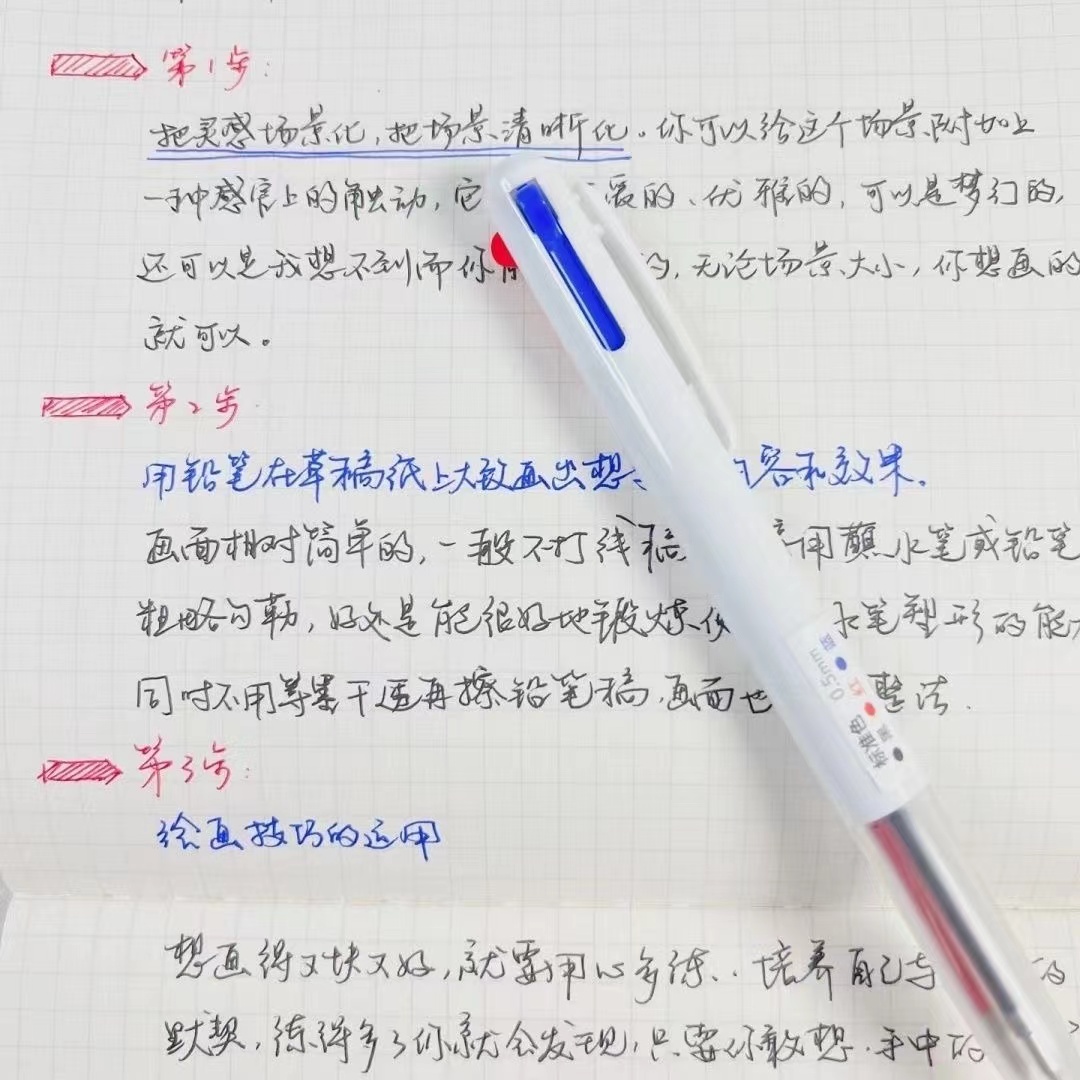 第1步:
把灵感场景化,把场景清晰化。你可以给这个场景附加上
一种感官上的触动,它 的、优雅的,可以是梦幻的,
还可以是我想不到而你 的,无论场景大小,你想画的
就可以。
第2步
用铅笔在草稿纸上大致画出想 容和效果.
画面相对简单的,一般不打线稿 用蘸水笔或铅笔
粗略勾勒,好处是能很好地锻炼 水笔塑形的能
同时不用等墨干透再擦铅笔稿,画面也 整洁.
第3步:
绘画技巧的运用
想画得又快又好,就要用心多练..培养自己与 的
默契,练得多了你就会发现,只要你敢想.手中的
标准色
0.5mm
黑
红
蓝